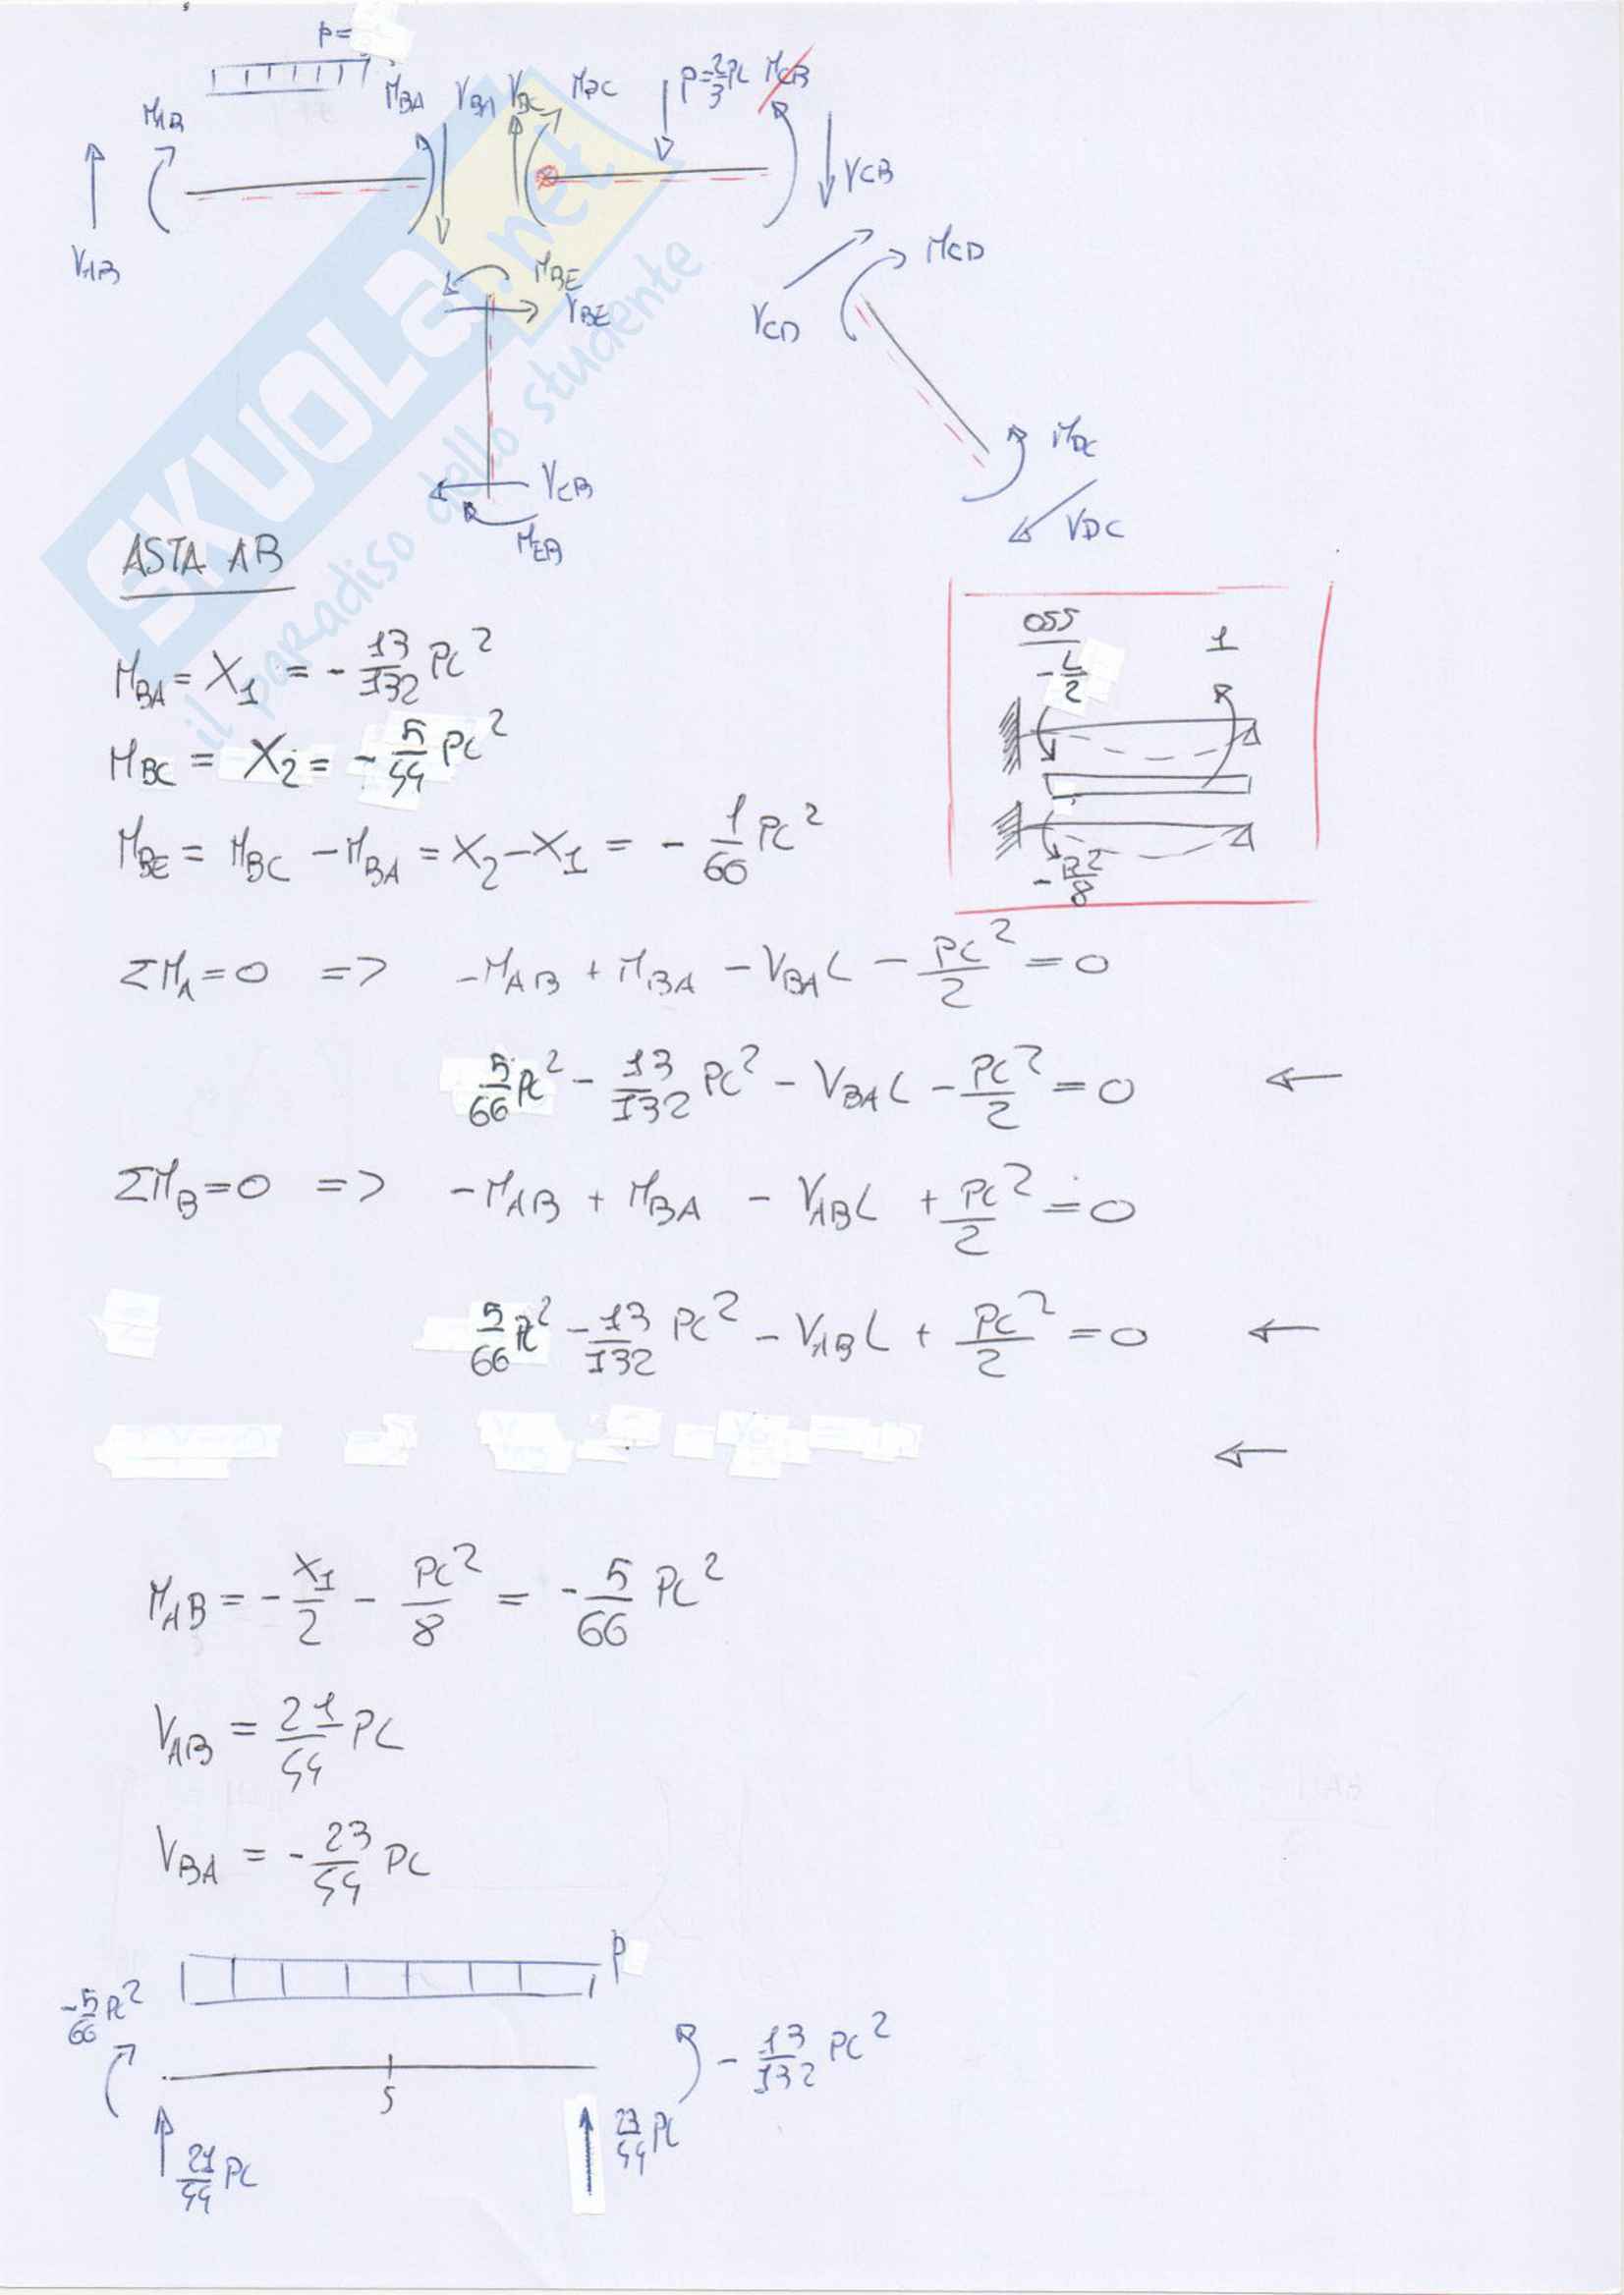 p=
M_AB
M_BA V_BA V_BC M_BC p=2/3 PL M_CB
V_AB
V_CB
M_CD
V_CD
M_BE
V_BE
M_DC
V_DC
V_CB
M_EB
SKUOLA.net
il paradiso dello studente
ASTA AB
M_BA = X_1 = - 13/132 PL^2
M_BC = X_2 = - 5/44 PL^2
M_BE = M_BC - M_BA = X_2 - X_1 = - 1/66 PL^2
OSS
- L/2
1
- PL^2/8
ΣM_A = 0 => -M_AB + M_BA - V_BA L - PL^2/2 = 0
5/66 PL^2 - 13/132 PL^2 - V_BA L - PL^2/2 = 0 ←
ΣM_B = 0 => -M_AB + M_BA - V_AB L + PL^2/2 = 0
5/66 PL^2 - 13/132 PL^2 - V_AB L + PL^2/2 = 0 ←
←
M_AB = - X_1/2 - PL^2/8 = - 5/66 PL^2
V_AB = 21/44 PL
V_BA = - 23/44 PL
p
-5/66 PL^2
- 13/132 PL^2
S
21/44 PL
23/44 PL